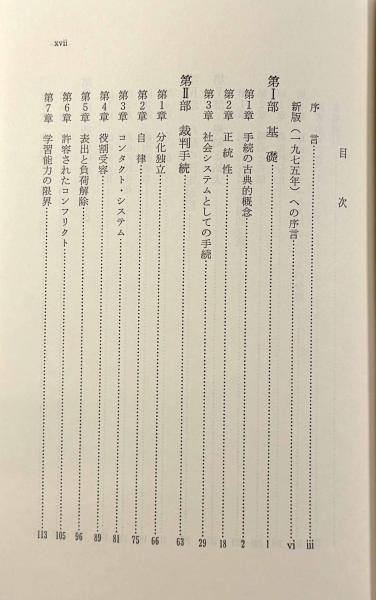 xvii
目次
序言……iii
新版（一九七五年）への序言……vi
第Ⅰ部 基礎……1
第1章 手続の古典的概念……2
第2章 正統性……18
第3章 社会システムとしての手続……29
第Ⅱ部 裁判手続……63
第1章 分化独立……66
第2章 自律……75
第3章 コンタクト・システム……81
第4章 役割受容……89
第5章 表出と負荷解除……96
第6章 許容されたコンフリクト……105
第7章 学習能力の限界……113